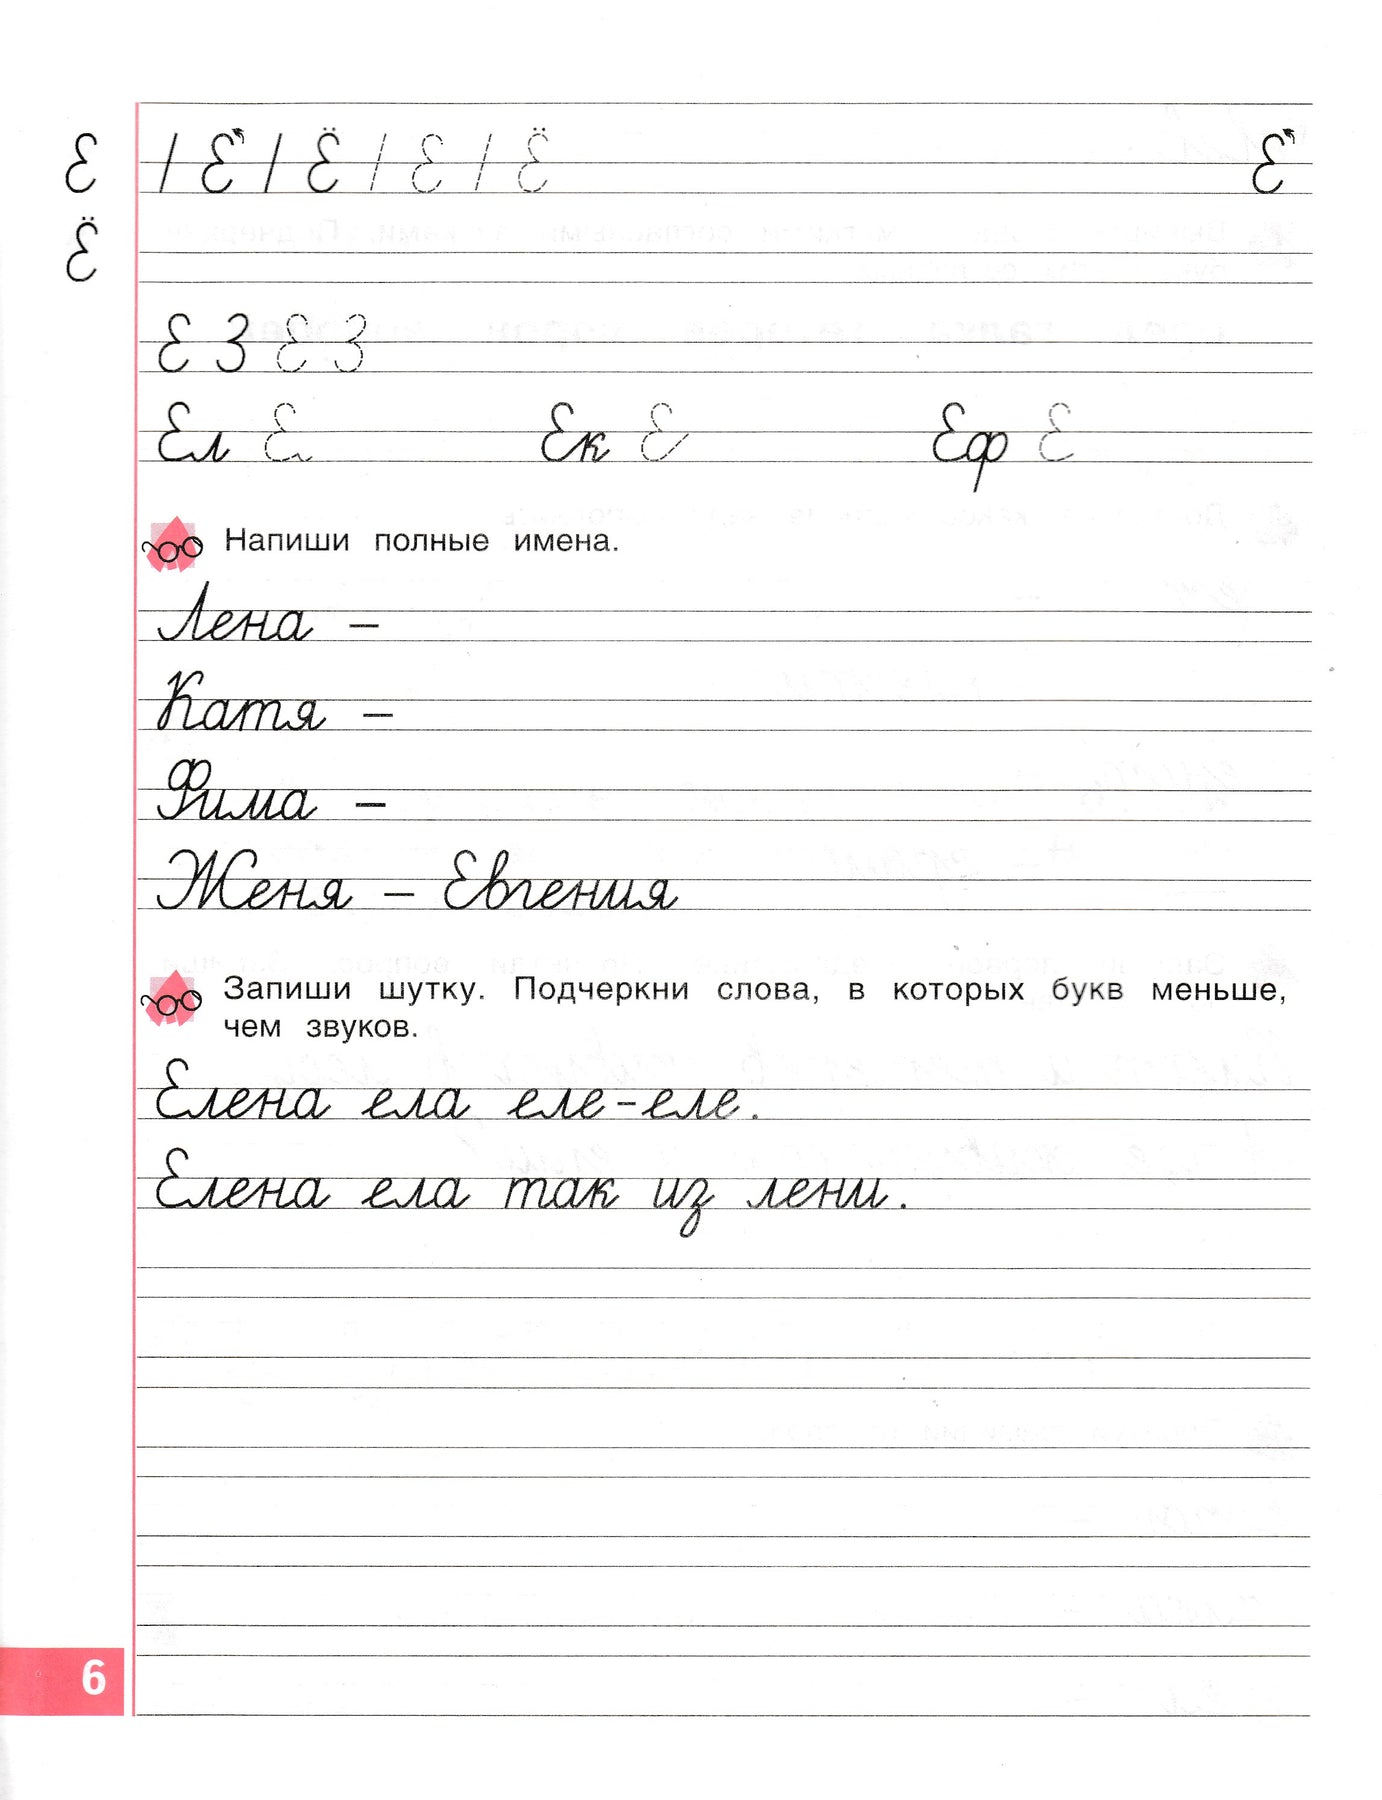 Е / Е / Ё / Е / Ё Е
Ё
Е З Е З
Ел Е Ек Е Еф Е
Напиши полные имена.
Лена –
Катя –
Фима –
Женя – Евгения
Запиши шутку. Подчеркни слова, в которых букв меньше,
чем звуков.
Елена ела еле-еле.
Елена ела так из лени.
6